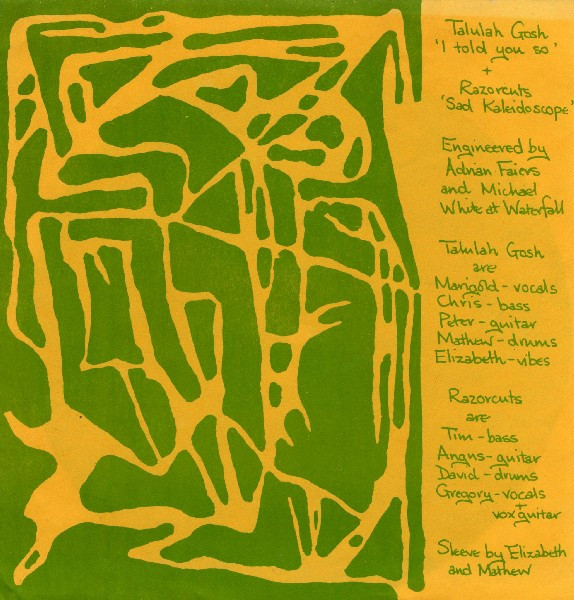 Talulah Gosh
'I told you so'
+
Razorcuts
'Sad Kaleidoscope'
Engineered by
Adrian Faiers
and Michael
White at Waterfall
Talulah Gosh
are
Marigold - vocals
Chris - bass
Peter - guitar
Mathew - drums
Elizabeth - vibes
Razorcuts
are
Tim - bass
Angus - guitar
David - drums
Gregory - vocals
+
vox guitar
Sleeve by Elizabeth
and Mathew